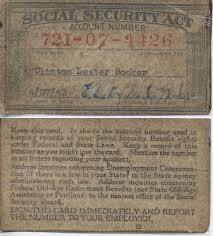 SOCIAL SECURITY ACT
ACCOUNT NUMBER
Clinton Lester Booker
Keep this card. It shows the account number used in
keeping records of your Social Security Benefit rights
under Federal and State Laws. Keep a record of this
number as you might lose the card. Mention the number
in all letters regarding your account.
Address inquiries concerning Unemployment Compensation
(if there is a law in your State) to the State agency
administering such law. Address inquiries concerning
Federal Old-Age Retirement Benefits (not State Old-Age
Assistance or Pensions) to the nearest office of the
Social Security Board.
SIGN THIS CARD IMMEDIATELY AND REPORT
THE NUMBER TO YOUR EMPLOYER.